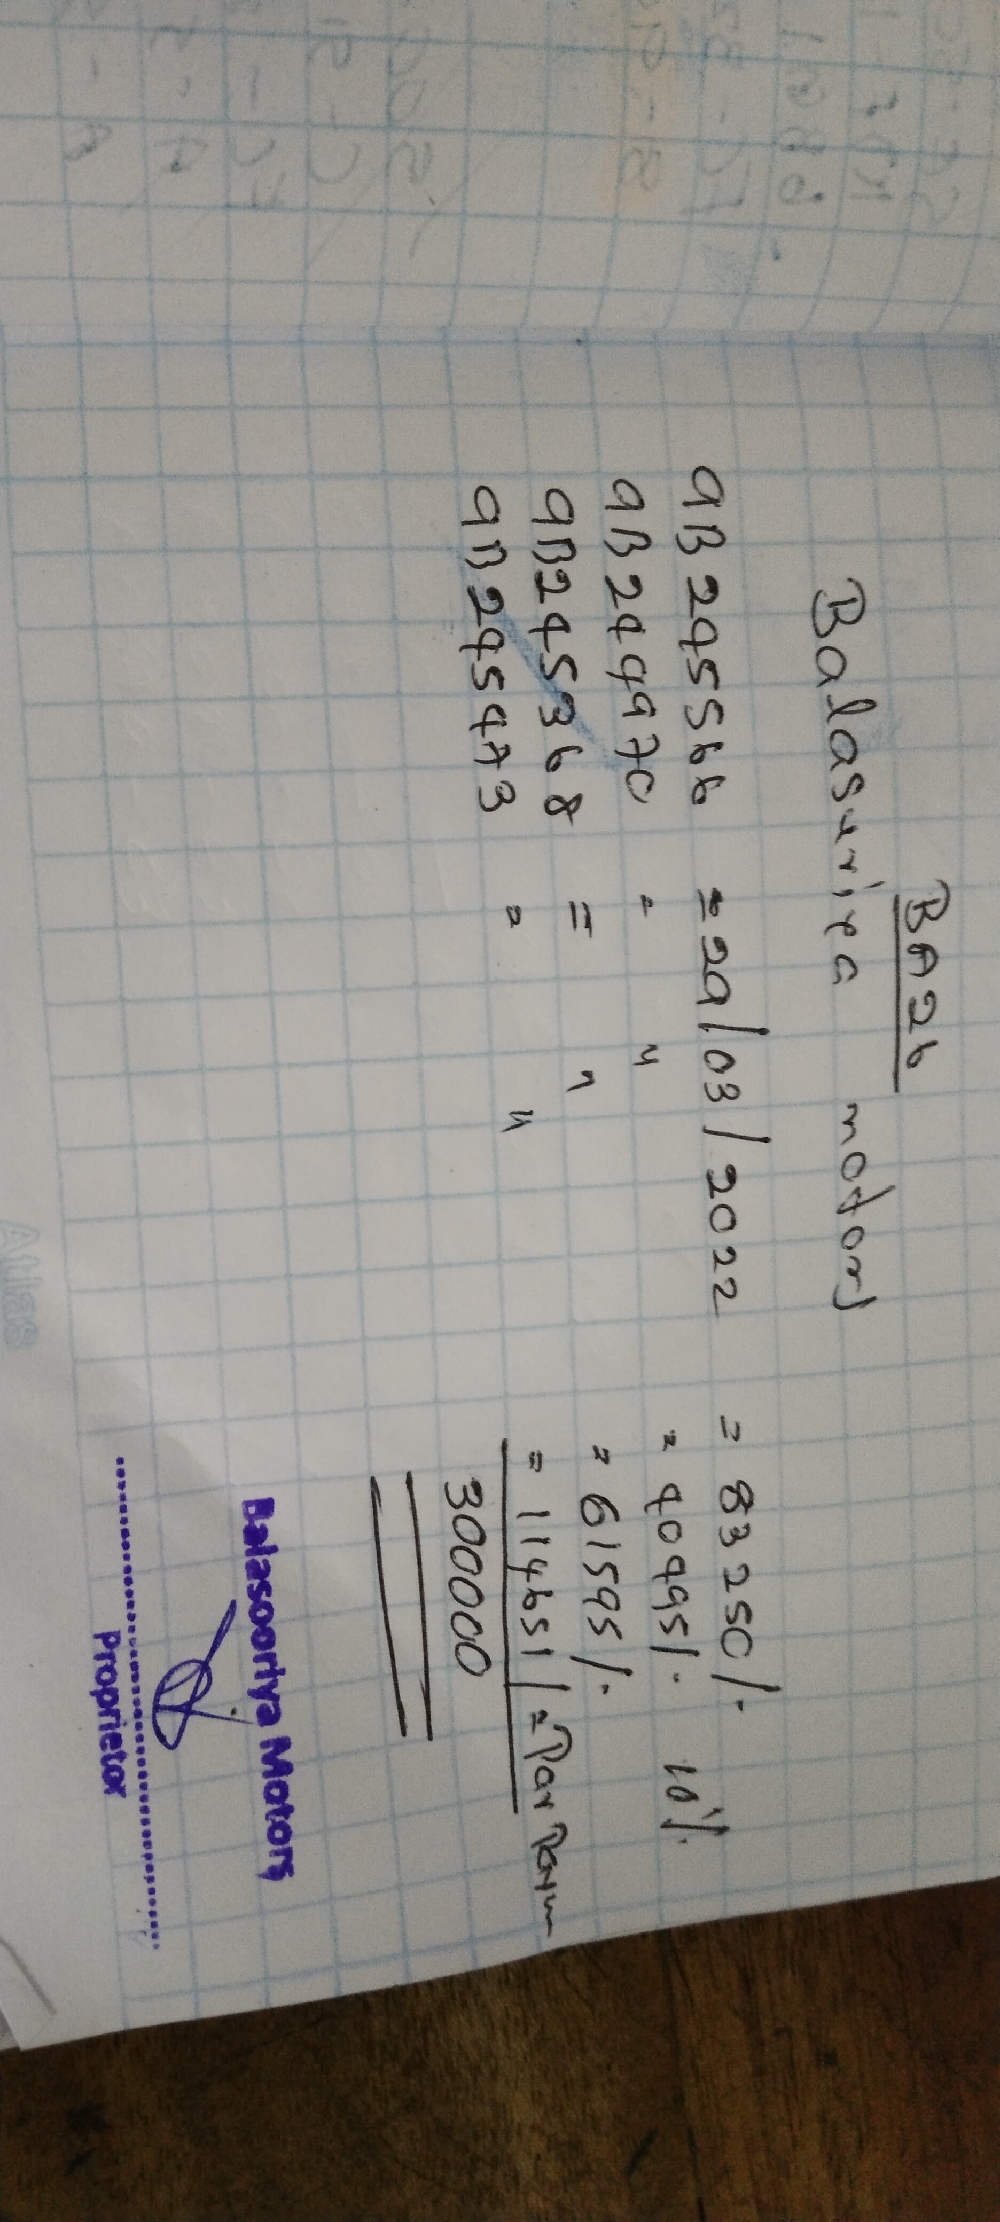 BA26
Balasuriya motors
9B 295566 = 29/03/2022 = 83250/.
9B 299970 = " = 40995/. 10%
9B 295368 = " = 61595/.
9B 295973 = " = 114651/= Par
300000
Balasooriya Motors
Proprietor
Atlas